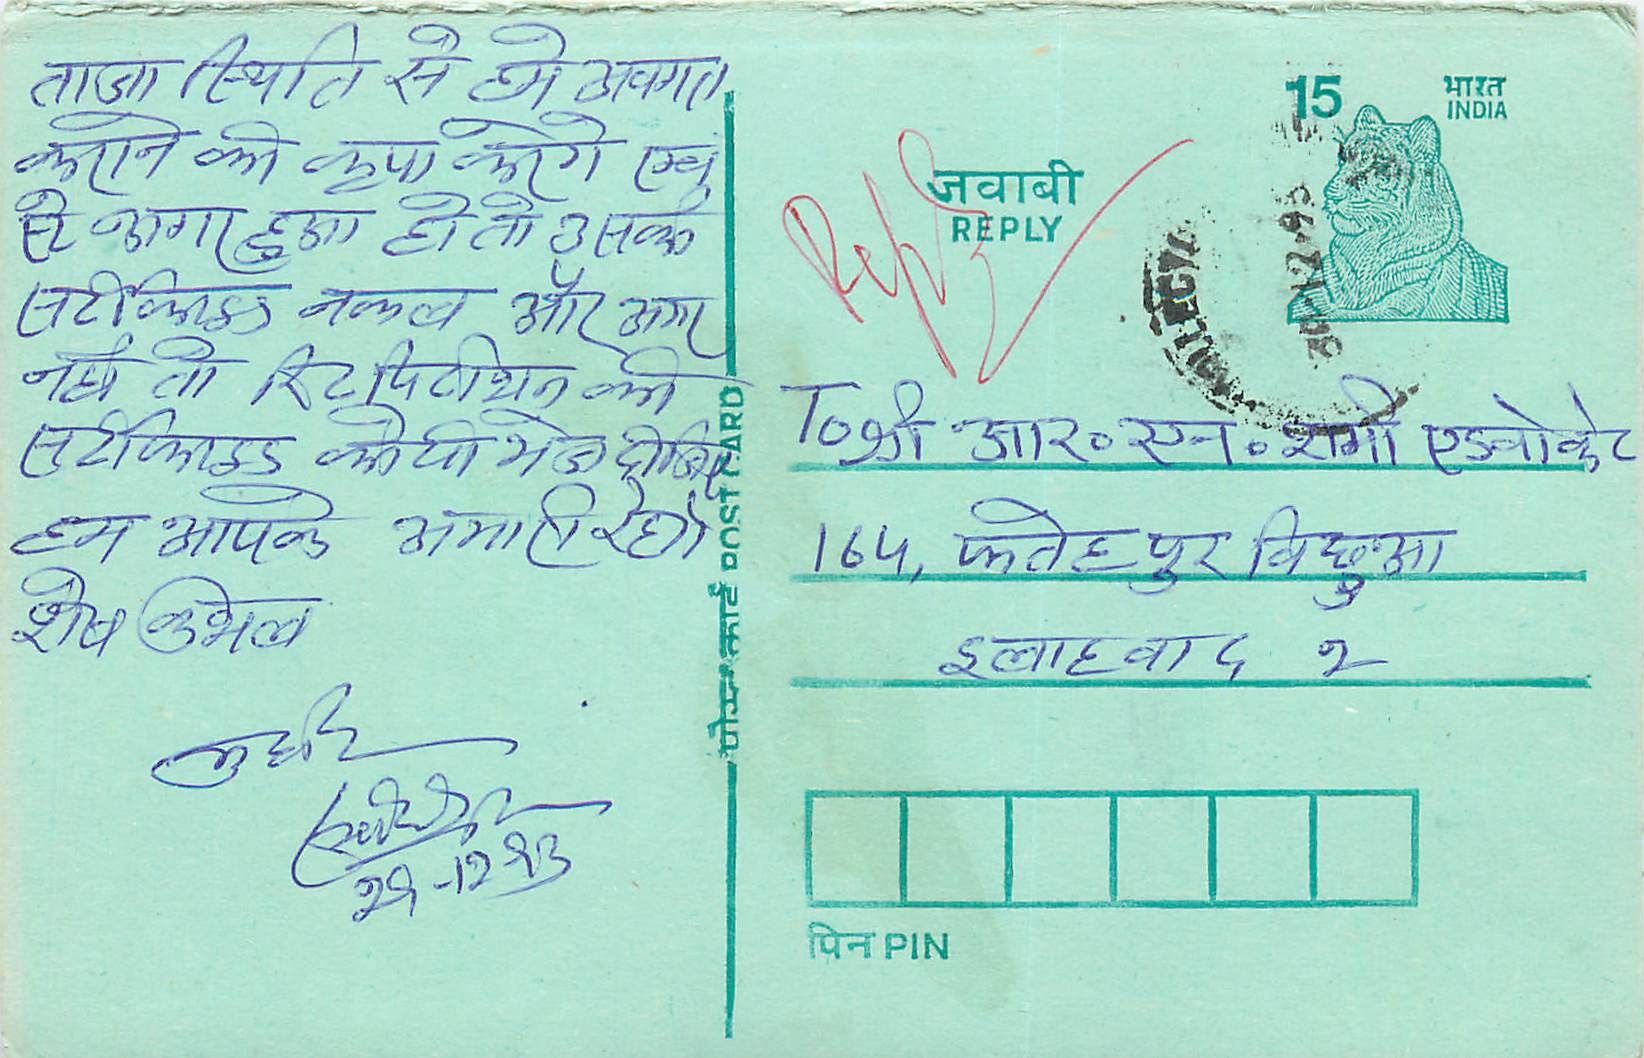 ताजा स्थिति से हमे अवगत
कराने की कृपा करेगे एवं
स्टे अगर हुआ हो तो उसके
सर्टीफाइड नकल और अगर
नही तो रिट पिटीशन की
सर्टीफाइड कापी भेज दीजिए
हम आपके अभारी रहेगे
शेष कुशल
29-12-93
पोस्ट कार्ड POST CARD
जवाबी
REPLY
Reply
15
भारत
INDIA
30-12-93
To श्री आर॰ एन॰ शर्मा एडवोकेट
164, फतेहपुर बिछुआ
इलाहबाद २
पिन PIN